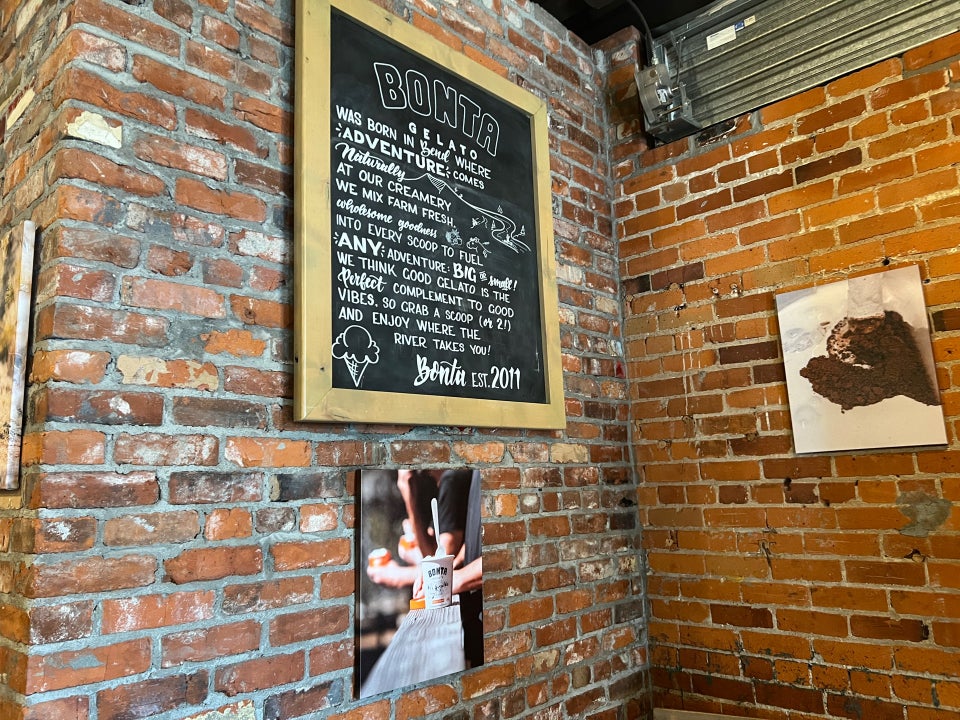 BONTA
GELATO
WAS BORN IN Bend WHERE
ADVENTURE COMES
Naturally
AT OUR CREAMERY
WE MIX FARM FRESH
wholesome goodness
INTO EVERY SCOOP TO FUEL
ANY ADVENTURE BIG or small!
WE THINK GOOD GELATO IS THE
Perfect COMPLEMENT TO GOOD
VIBES. SO GRAB A SCOOP (or 2!)
AND ENJOY WHERE THE
RIVER TAKES YOU!
Bonta EST. 2011
BONTA